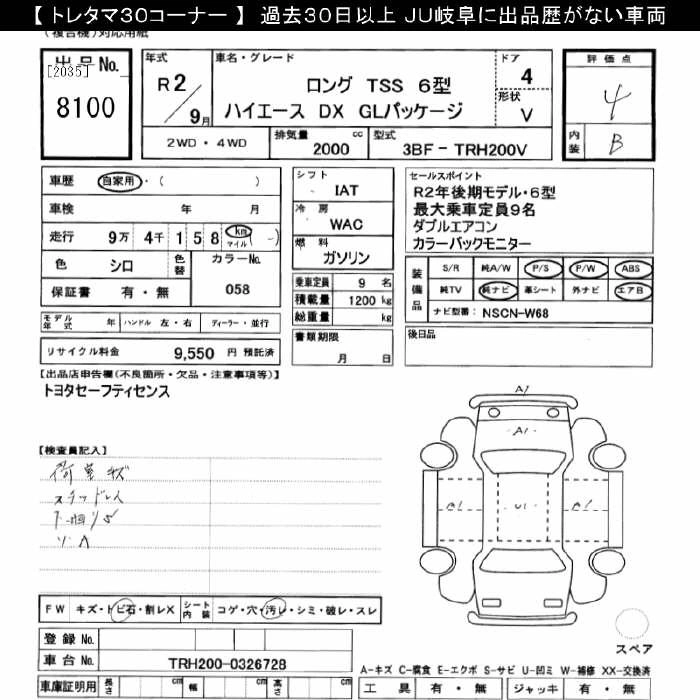 【 トレタマ30コーナー 】 過去30日以上 JU岐阜に出品歴がない車両
(複合機)対応用紙
出品No.
[2035]
8100
年式
R2/9月
車名・グレード
ロング TSS 6型
ハイエース DX GLパッケージ
ドア
4
形状
V
評価点
4
内装
B
2WD・4WD
排気量
2000
cc
型式
3BF-TRH200V
車歴 自家用・( )
車検 年 月
走行 9万 4千 1 5 8 km マイル (-)
色 シロ
色替
カラーNo.
058
保証書 有・無
シフト
IAT
冷房
WAC
燃料
ガソリン
乗車定員 9 名
積載量 1200 kg
総重量 kg
セールスポイント
R2年後期モデル・6型
最大乗車定員9名
ダブルエアコン
カラーバックモニター
装備品
S/R 純A/W P/S P/W ABS
純TV 純ナビ 革シート 外ナビ エアB
ナビ型番: NSCN-W68
モデル年式 年 ハンドル 左・右 ディーラー・並行
リサイクル料金 9,550 円 預託済
書類期限
月 日
後日品
【出品店申告欄(不良箇所・欠品・注意事項等)】
トヨタセーフティセンス
【検査員記入】
荷室キズ
スタッドレス
A1
A1
A1
U1
A1
FW キズ・トビ石・割レX シート内装 コゲ・穴・汚レ・シミ・破レ・スレ
登録 No.
車台 No. TRH200-0326728
車庫証明用 長さ cm 幅 cm 高さ cm
スペア
A-キズ C-腐食 E-エクボ S-サビ U-凹ミ W-補修 XX-交換済
工具 有・無 ジャッキ 有・無